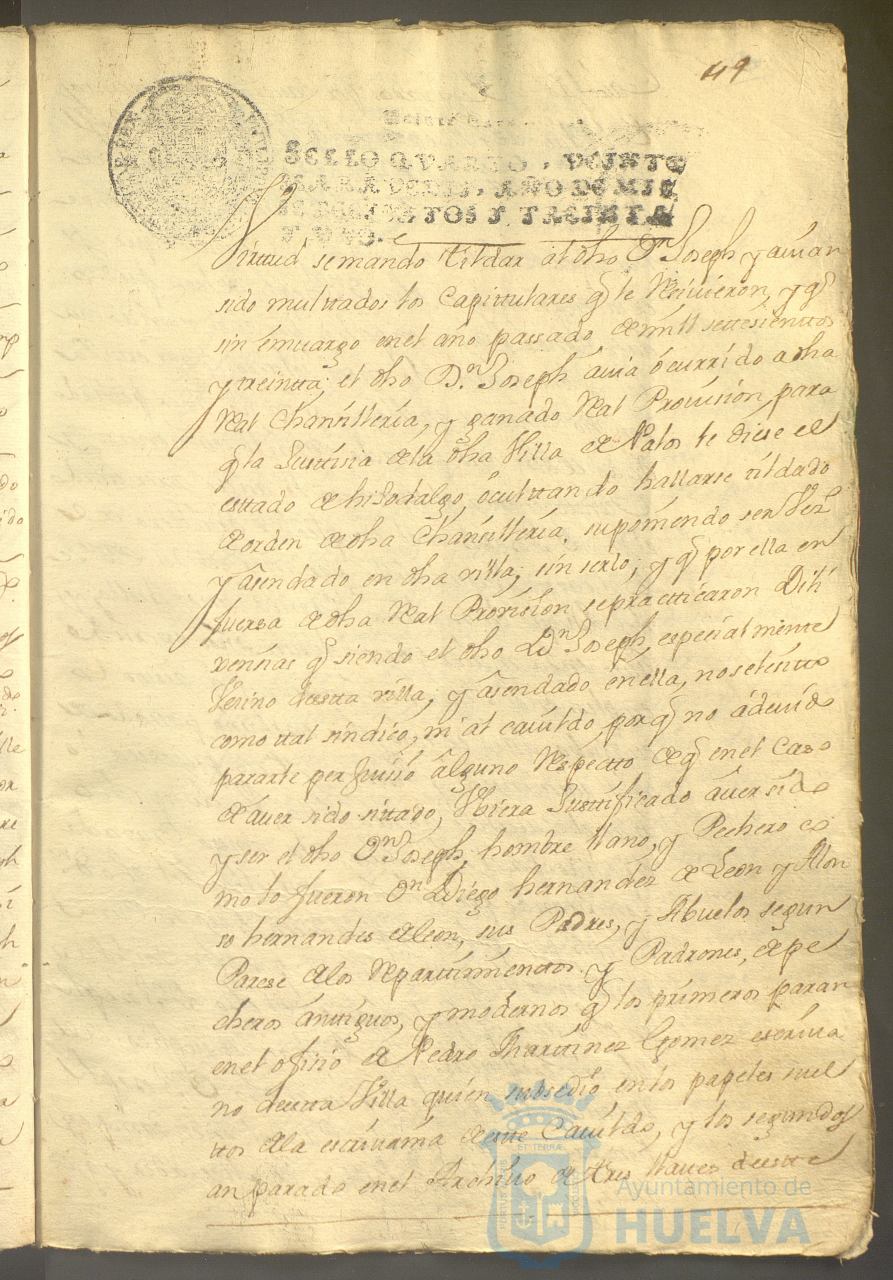 119
SELLO QVARTO, VEINTE
MARAVEDIS, AÑO DE MIL
SETECIENTOS Y TREINTA
Y VNO.
Virttud se mando tildar al dho Dn Joseph y avian
sido multtados los Capittulares q le Reciuieron, y q
sin emuargo en el año passado de mill settesienttos
y treintta; el dho Dn Joseph auia ocurrido a dha
Real Chansilleria, y ganado Real Provision para
q la Justtisia de la dha Villa de Palos le diese el
esttado de hijodalgo, ocultando hallarse tildado
de orden de dha Chansilleria, suponiendo ser Vez
y asendado en dha villa, sin serlo; y q por ella en
fuersa de dha Real Provision se practticaron Dili
xensias q siendo el dho Dn Joseph, especialmente
Vesino destta villa, y asendado en ella, no se
como ttal sindico, ni al cauildo, porq no a deuido
pararle perjuisio alguno Respectto de q en el Caso
de auer sido sittado, Vbiera Justtificado auer sido
y ser el dho Dn Joseph, hombre llano, y Pechero co
mo lo fueron Dn Diego hernandez de Leon y Alon
so hernandes de leon, sus Padres, y Abuelos segun
Parese de los Reparttimienttos y Padrones, de pe
cheros anttiguos, y modernos q los primeros paran
en el ofisio de Pedro Marttinez Gomez escriua
no destta Villa quien subsedio en los papeles suel
ttos de la escriuania de estte Cauildo, y los segundos
an parado en el Archiuo de tres llaves de estte
Ayuntamiento de
HUELVA